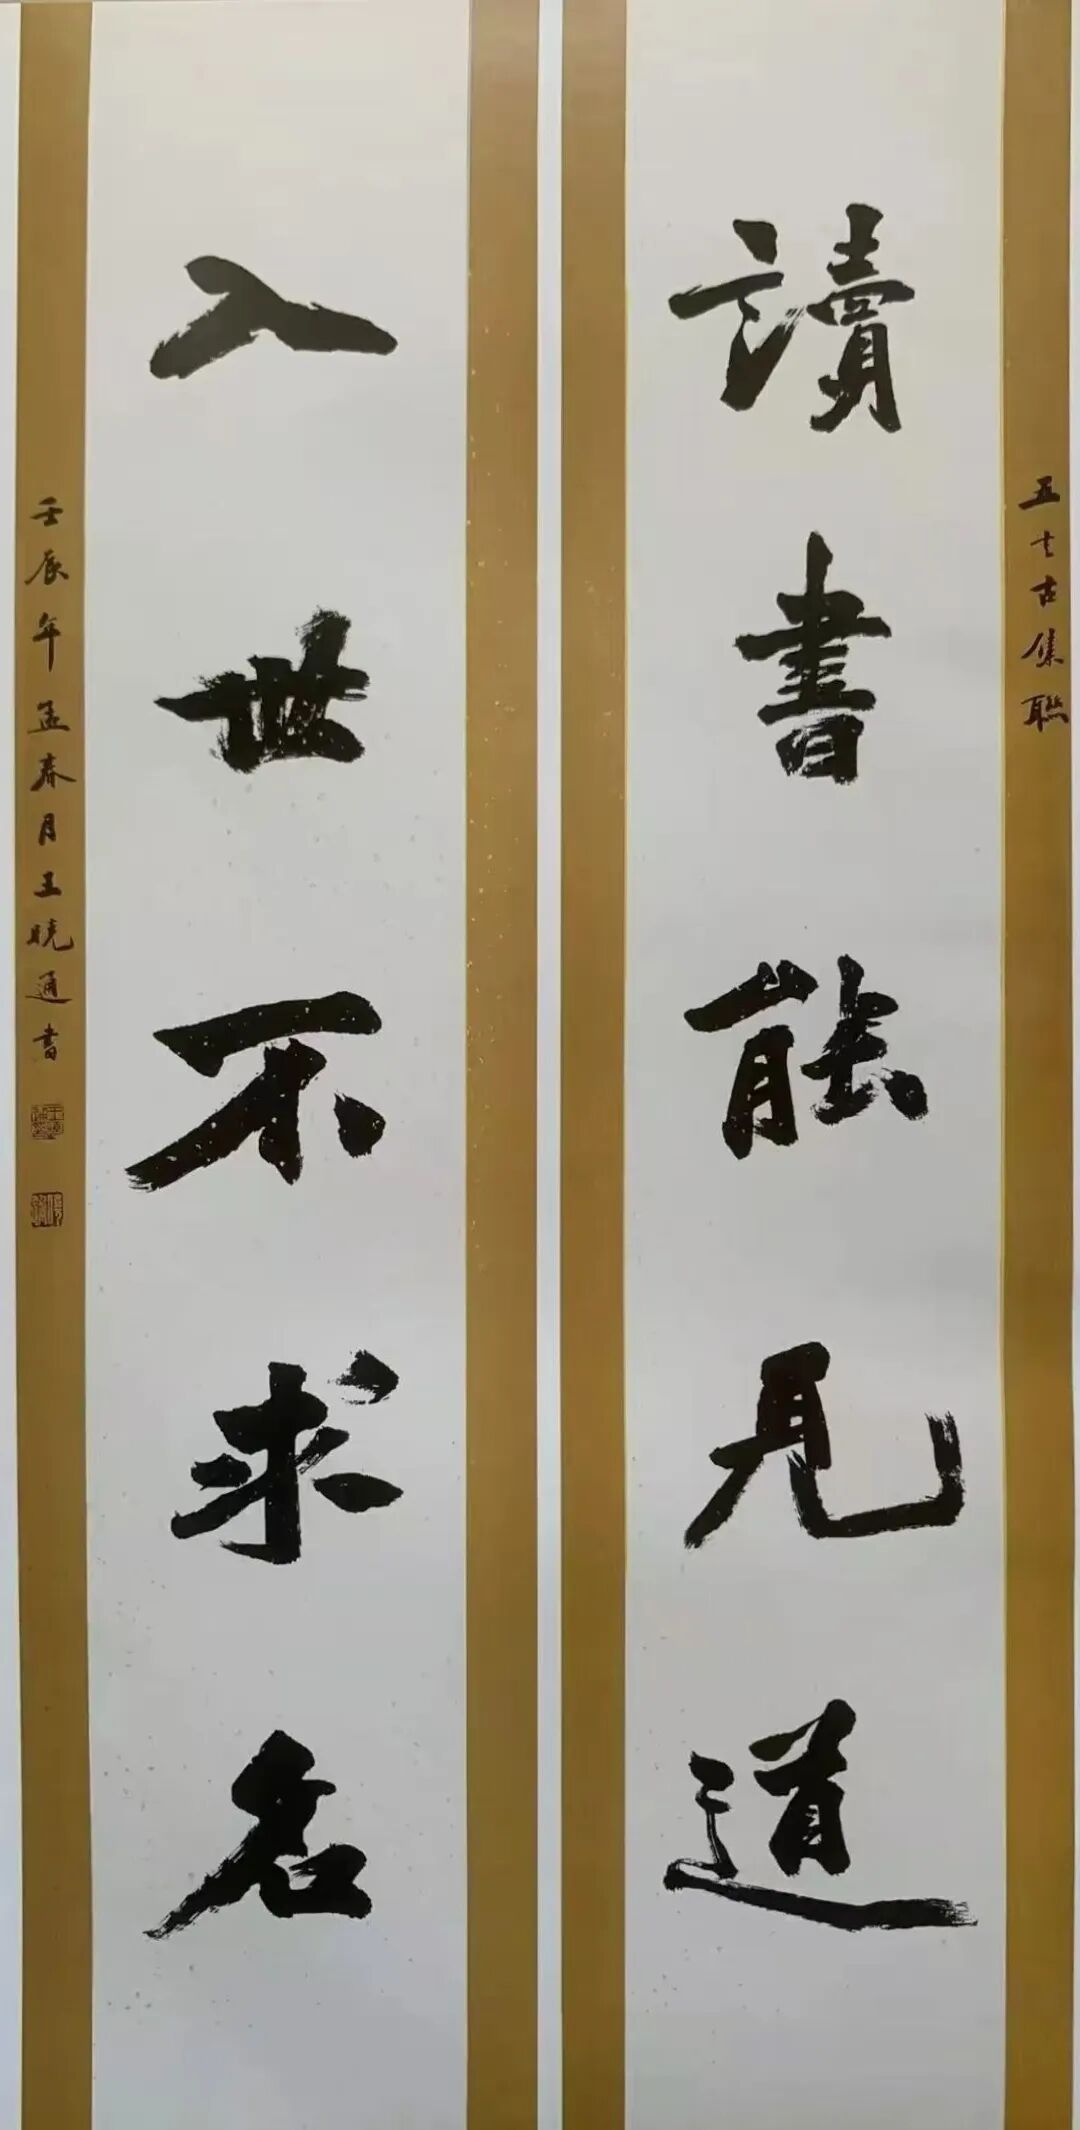 五言古集聯
讀書能見道
入世不求名
壬辰年孟春月王曉通書